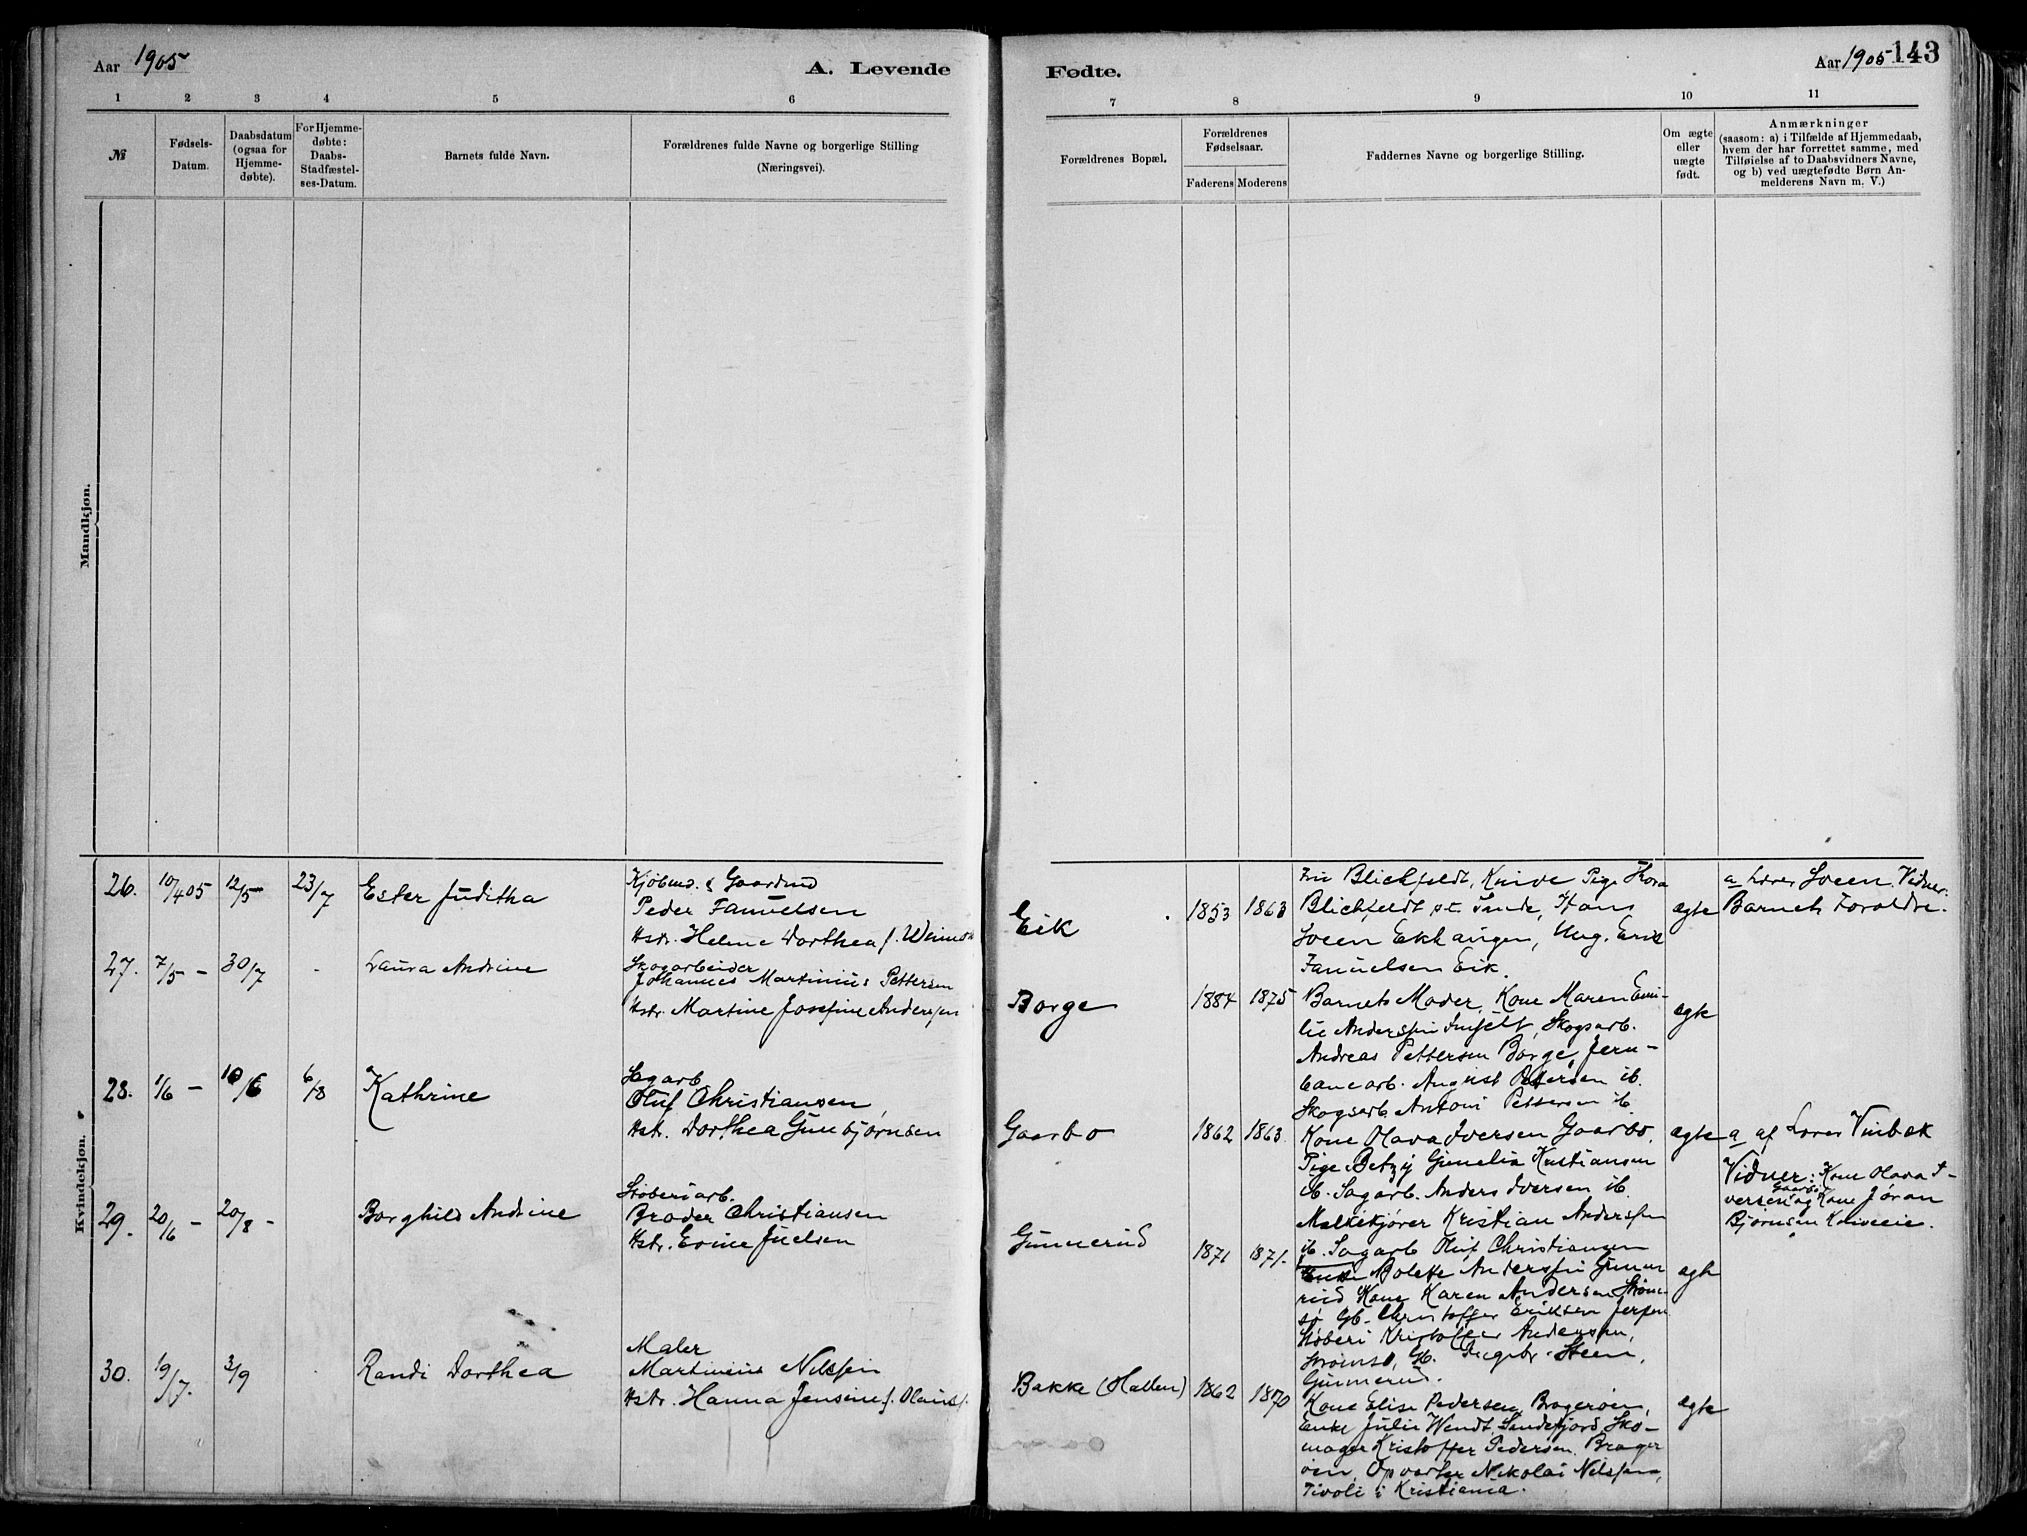 Aar 1905
A. Levende
1 2 3 4 5 6
№
Fødsels-
Datum.
Daabsdatum
(ogsaa for
Hjemme-
døbte).
For Hjemme-
døbte:
Daabs-
Stadfæstel-
ses-Datum.
Barnets fulde Navn.
Forældrenes fulde Navne og borgerlige Stilling
(Næringsvei).
Mandkjøn.
Kvindekjøn.
26. 10/4 05 12/5 23/7 Ester Juditha
Kjøbmd. & Gaardmd
Peder Fanuelsen
Hstr. Helene Dorthea f.
27. 7/5 - 30/7 - Laura Andrine
Skogarbeider
Johannes Martinius Pettersen
Hstr. Martine Josefine Andersen
28. 1/6 - 10/6 6/8 Kathrine
Sagarb.
Oluf Christiansen,
Hstr. Dorthea Gunbjørnsen
29. 20/6 - 20/8 - Borghild Andrine
Støberiarb.
Broder Christiansen
Hstr. Evine Juelsen
30. 19/7. 3/9 - Randi Dorthea
Maler
Martinius Nilssen
Hstr. Hanna Jensine f. Olauss.
Fødte.
Aar 1905 143
7 8 9 10 11
Forældrenes Bopæl.
Forældrenes
Fødselsaar.
Faderens Moderens
Faddernes Navne og borgerlige Stilling.
Om ægte
eller
uægte
født.
Anmærkninger
(saasom: a) i Tilfælde af Hjemmedaab,
hvem der har forrettet samme, med
Tilføielse af to Daabsvidners Navne,
og b) ved uægtefødte Børn An-
melderens Navn m. V.)
Eik 1853 1863
Blichfeldt, Knive Pige Thora
Blichfeldt p.t. Sande, Hans
Sveen Ekhaugen, Ung. Erik
Fanuelsen Eik.
ægte
a Lærer Sveen. Vidner:
Barnets Forældre.
Borge 1884 1875
Barnets Moder, Kone Maren Emi-
lie Anderssen, Skogsarb.
Andreas Pettersen Borge, Jern-
banearb. August Petersen ib.
Skogsarb Anton Pettersen ib.
ægte
Gaarbo 1862 1863.
Kone Olava Iversen Gaarbo,
Pige Betzy Gunelia Kristiansen
ib. Sagarb. Anders Iversen ib.
Melkekjører Kristian Anderssen
ib. Sagarb Oluf Christiansen
ægte
a af Lærer Vinbæk
Vidner: Kone Olava I-
versen Gaarbo og Kone Jøran
Bjørnsen Kniveeie.
Gunnerud 1871 1871.
Enke Bolette Anderssen Gunne
rud Kone Karen Andersen Strøm-
sø Gb. Christoffer Eriksen
Støberi Kristoffer Andersen,
Strømsø, Gb. Ingebr. Steen,
Gunnerud.
ægte
Bakke (Hallen) 1862 1870
Kone Elise Pedersen, Bragerøen,
Enke Julie Wendt, Sandefjord, Sko-
mager Kristoffer Pedersen. Brager
øen, Opvarter Nikolai Nilssen,
Tivoli i Kristiania.
ægte